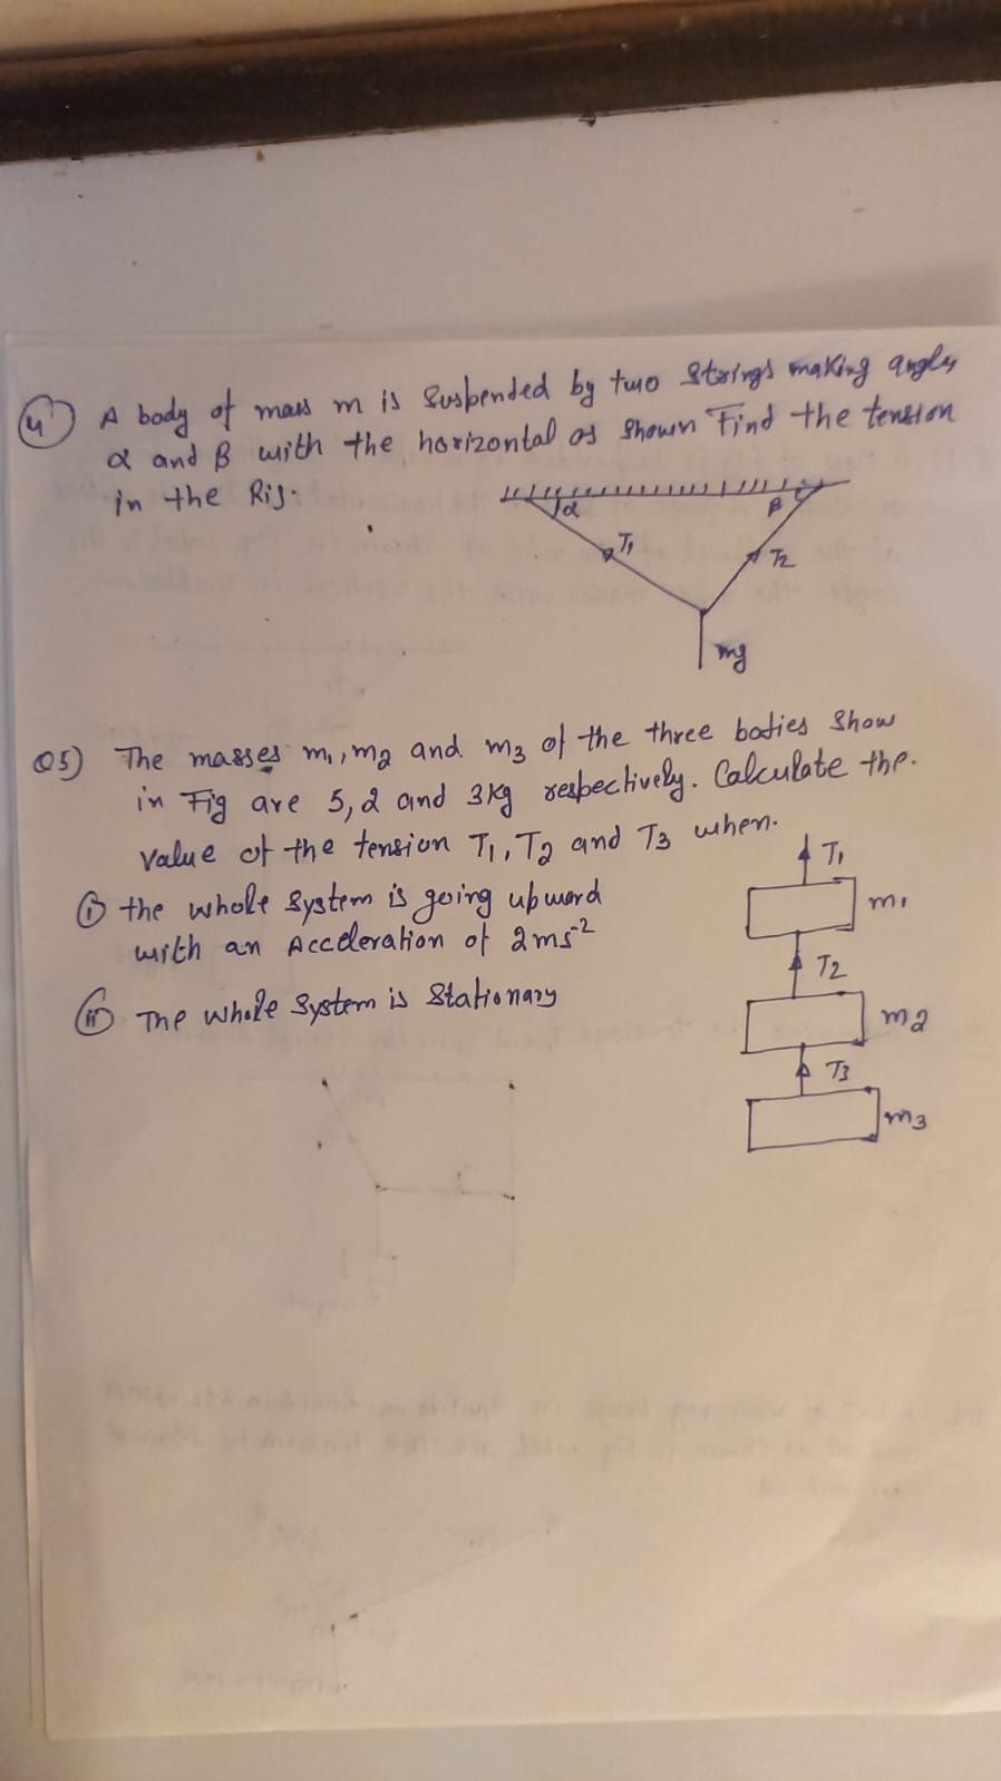 4) A body of mass m is suspended by two strings making angles
α and β with the horizontal as shown Find the tension
in the Rij.
α β
T1
T2
mg
Q5) The masses m1, m2 and m3 of the three bodies show
in Fig are 5, 2 and 3kg respectively. Calculate the.
value of the tension T1, T2 and T3 when.
T1
(i) the whole system is going upward
m1
with an Acceleration of 2ms⁻²
T2
(ii) The whole system is stationary
m2
T3
m3